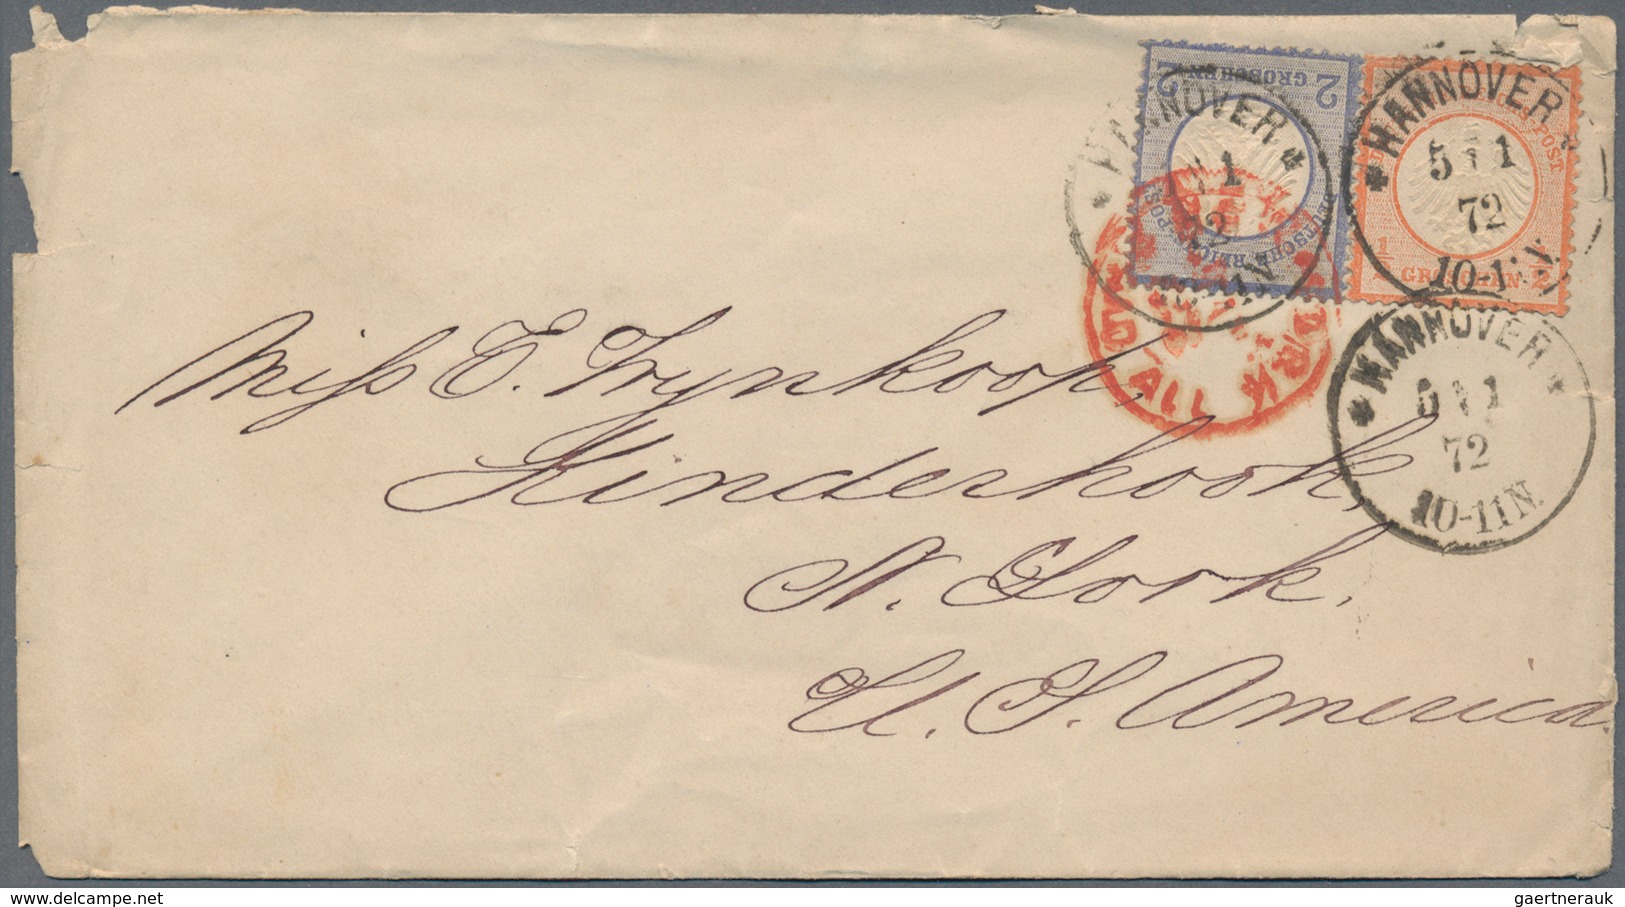 2 GROSCHEN 2
DEUTSCHE REICHS-POST
HANNOVER
1
72
HANNOVER
5 1
72
10-11 N.
1/2 GROSCHEN 1/2
HANNOVER
5 1
72
10-11 N.
PAID ALL
Miss E. Wynkoop,
Kinderhook,
N. York.
U. S. America.
www.delcampe.net
gaertnerauk